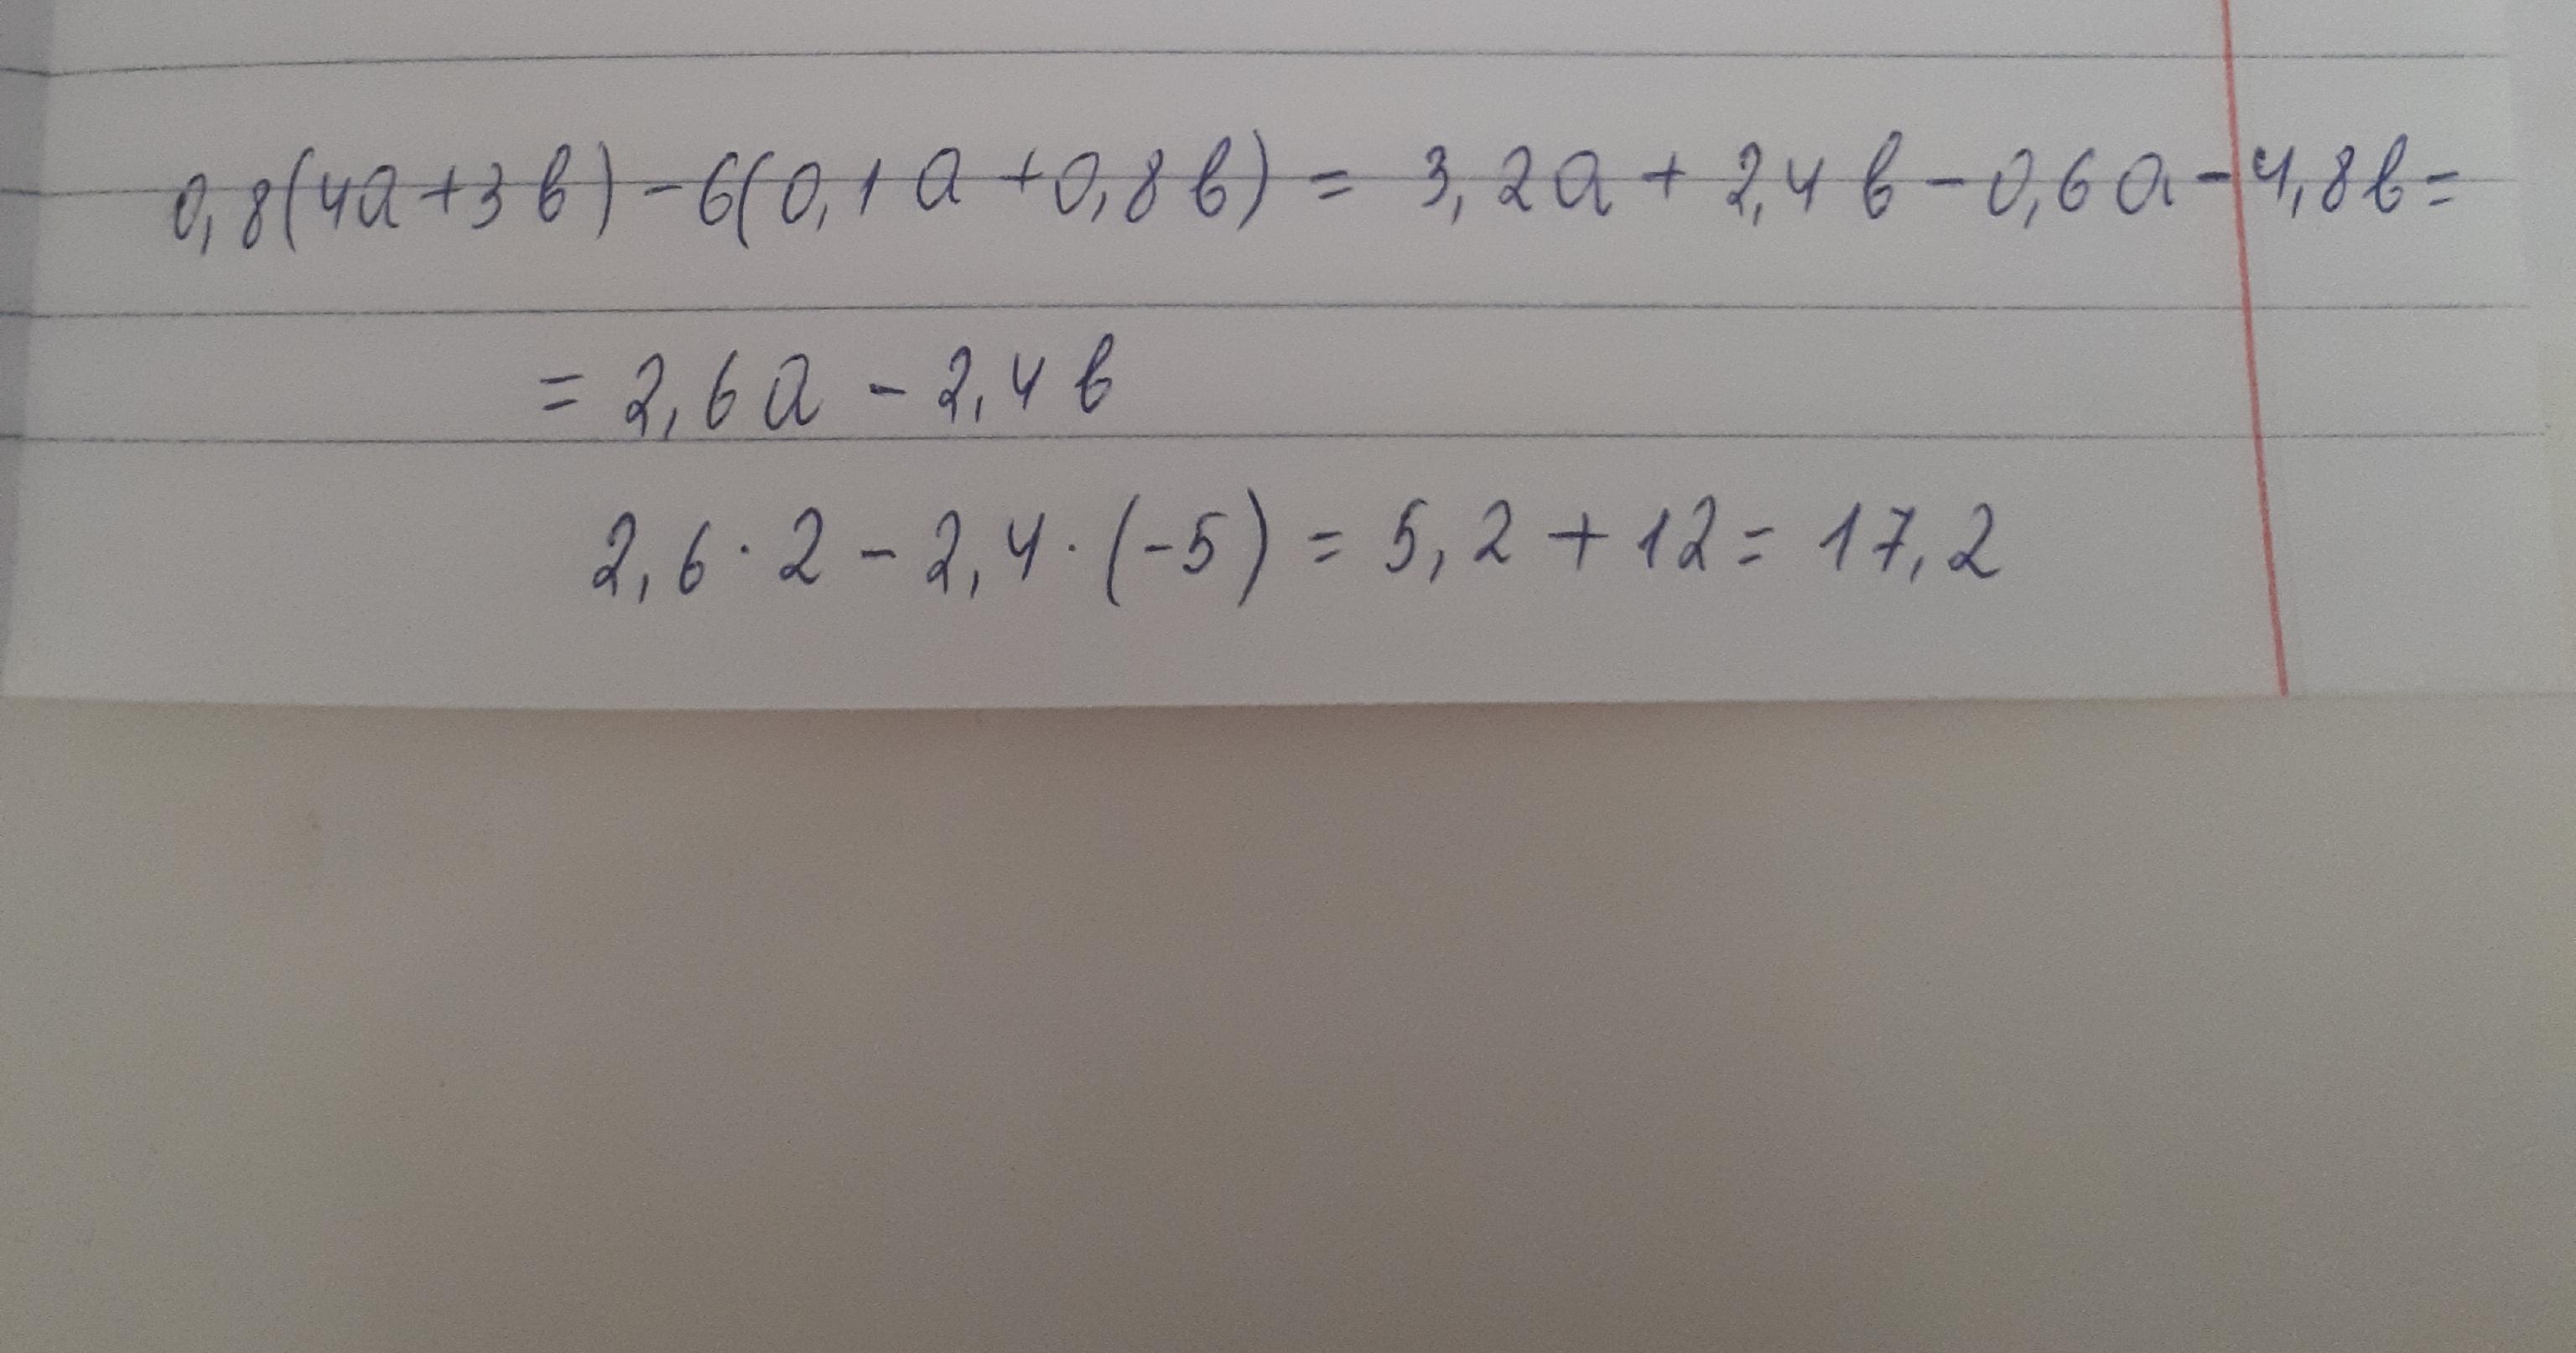 0,8(4a+3в)-6(0,1a+0,8в) = 3,2a + 2,4в - 0,6a - 4,8в =
= 2,6a - 2,4в
2,6 · 2 - 2,4 · (-5) = 5,2 + 12 = 17,2